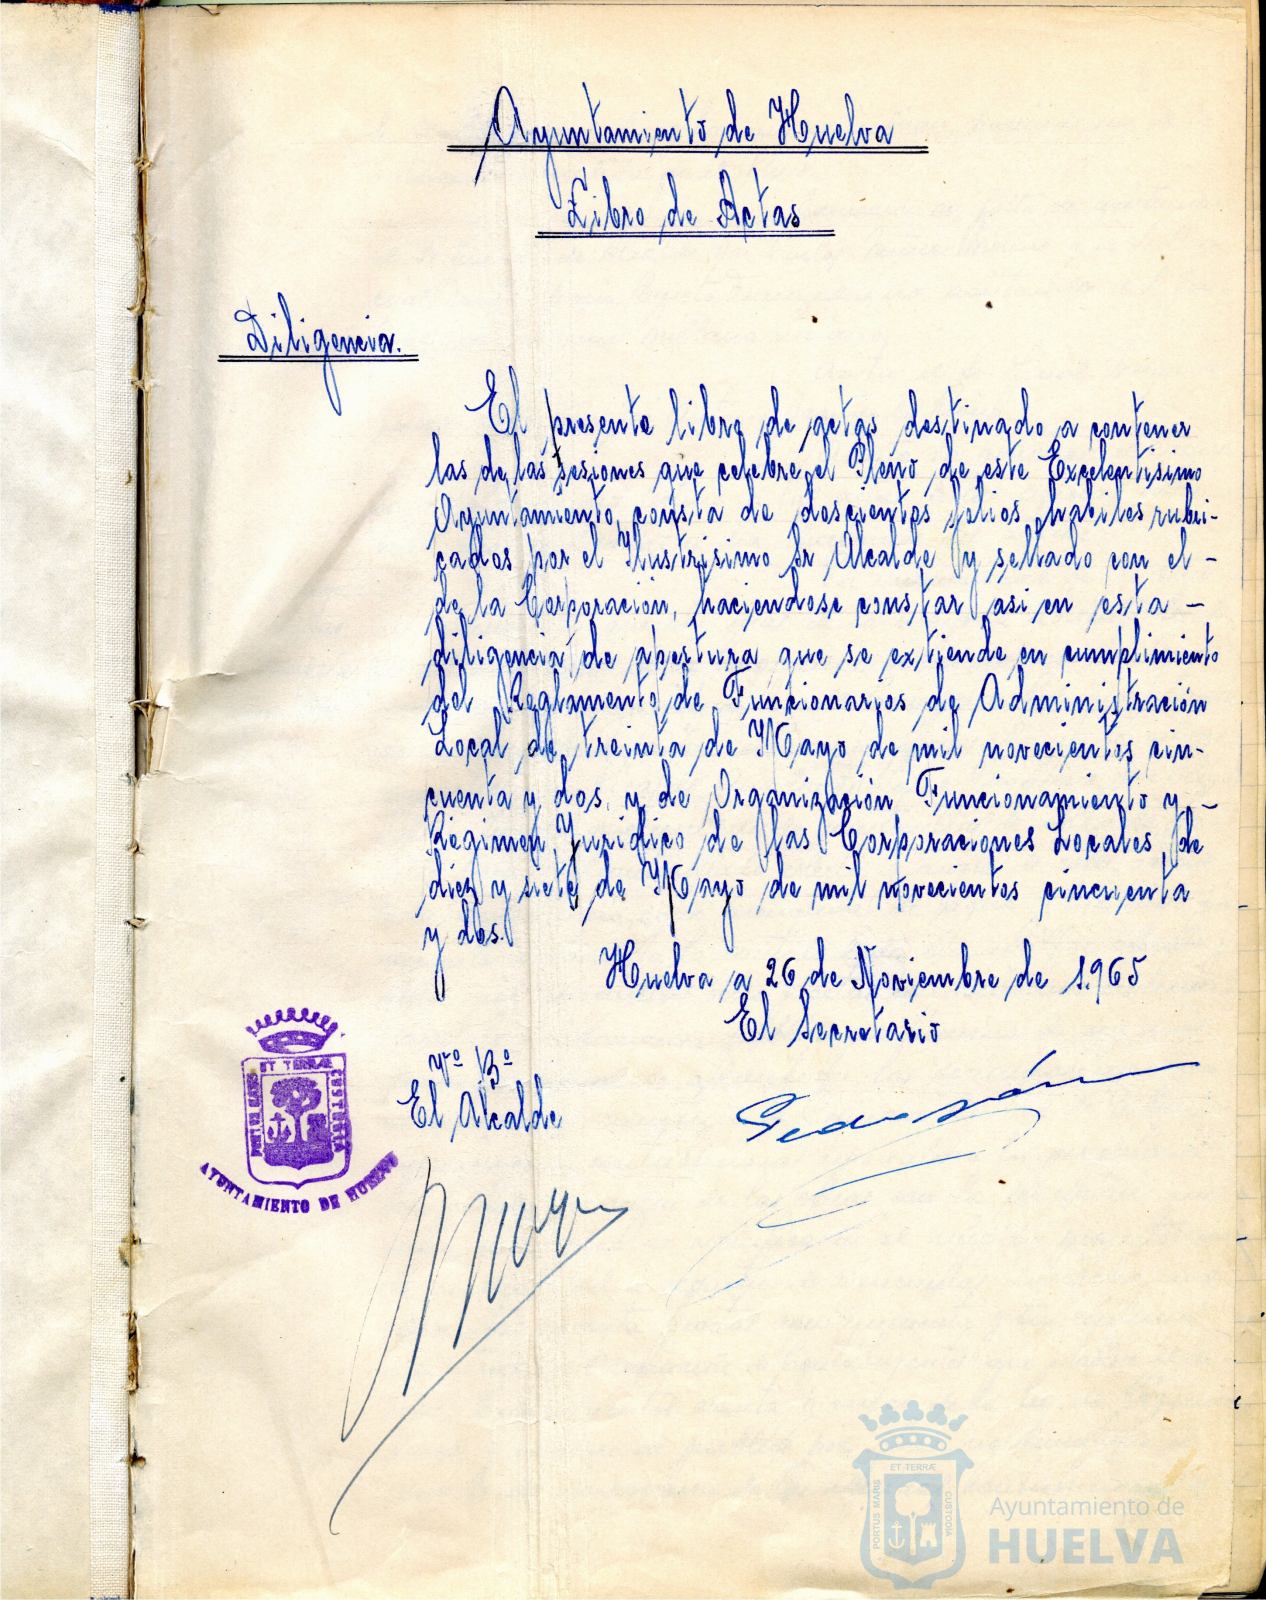 Ayuntamiento de Huelva
Libro de Actas
Diligencia.
El presente libro de actas destinado a contener
las de las sesiones que celebre el Pleno de este Excelentisimo
Ayuntamiento, consta de doscientos folios habiles rubri-
cados por el Ilustrisimo Sr Alcalde y sellado con el -
de la Corporación, haciendose constar asi en esta -
diligencia de apertura que se extiende en cumplimiento
del Reglamento de Funcionarios de Administración
Local de treinta de Mayo de mil novecientos cin-
cuenta y dos, y de Organización Funcionamiento y -
Régimen Juridico de las Corporaciones Locales, de
diez y siete de Mayo de mil novecientos cincuenta
y dos.
Huelva a 26 de Noviembre de 1.965
El Secretario
Vº Bº
El Alcalde
PORTUS MARIS ET TERRAE CUSTODIA
AYUNTAMIENTO DE HUELVA
PORTUS MARIS ET TERRÆ CUSTODIA
Ayuntamiento de
HUELVA